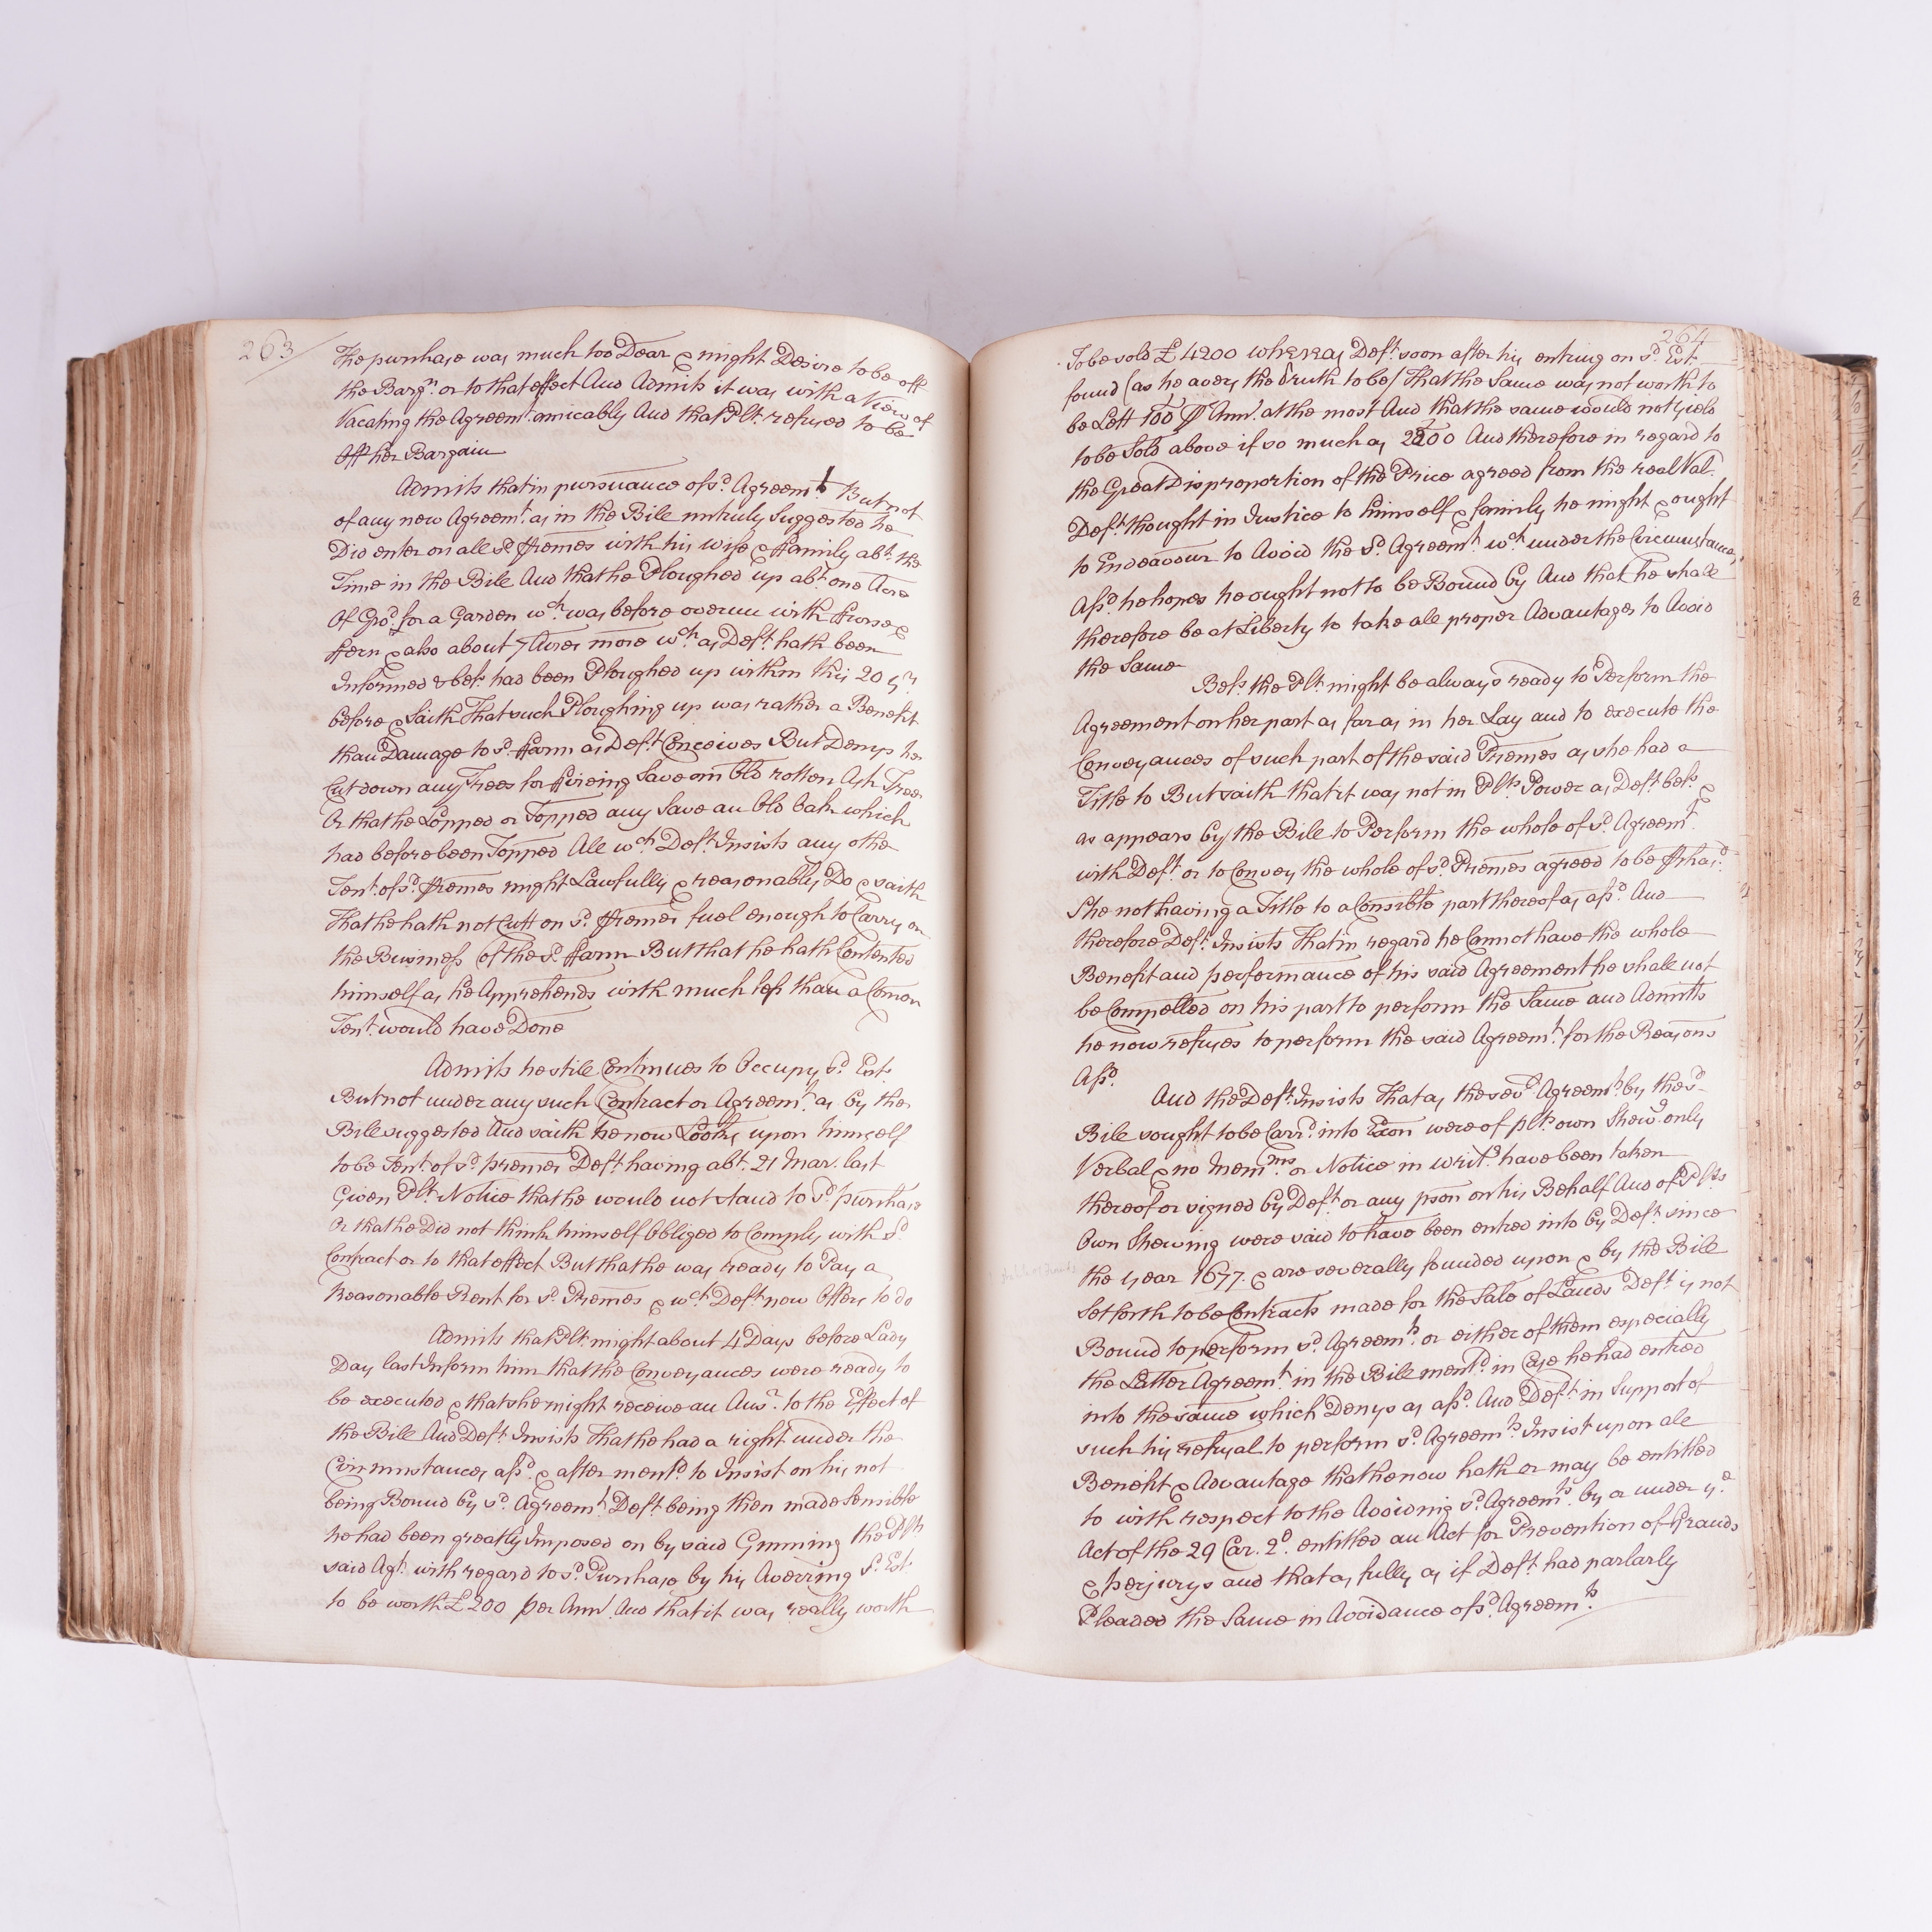 263
The purchase was much too Dear & might Desire to be off
the Barg.n or to that effect And Admits it was with a View of
Vacating the Agreem.t amicably And that Plt. refused to be
Off her Bargain
Admits that in pursuance of s.d Agreem.t But not
of any new Agreem.t as in the Bill untruly Suggested he
Did enter on all s.d Premes with his wife & ffamily ab.t the
Time in the Bill And that he Ploughed up ab.t one Acre
Of Gro.d for a Garden w.ch was before overun with ffurse &
ffern & also about 7 Acres more w.ch as Def.t hath been
Informed & bel.s had been Ploughed up within this 20 y.rs
before & Saith That such Ploughing up was rather a Benefit
than Damage to s.d ffarm as Def.t Conceives But Denys he
Cut down any Trees for ffireing Save an Old rotten Ash Tree
Or that he Lopped or Topped any Save an Old Oak which
had before been Topped All w.ch Def.t Insists any othe
Ten.t of s.d Premes might Lawfully & reasonably Do & saith
That he hath not Cutt on s.d Premes fuel enough to Carry on
the Business of the s.d ffarm But that he hath Contented
himself as he Apprehends with much less than a Comon
Ten.t would have Done
Admits he still Continues to Occupy s.d Est.
But not under any such Contract or Agreem.t as by the
Bill suggested And saith he now Looks upon himself
to be Ten.t of s.d premes Def.t having ab.t 21 Mar. last
Given Plt. Notice that he would not stand to s.d purchase
Or that he Did not think himself Obliged to Comply with s.d
Contract or to that effect But that he was ready to Pay a
Reasonable Rent for s.d Premes & w.ch Def.t now Offers to do
Admits that Plt. might about 4 Days before Lady
Day last Inform him that the Conveyances were ready to
be executed & that she might receive an Ans.r to the Effect of
the Bill And Def.t Insists That he had a right under the
Circumstances afs.d & after ment.d to Insist on his not
being Bound by s.d Agreem.t Def.t being then made Sensible
he had been greatly Imposed on by said Gunning the Plts
said Ag.t with regard to s.d Purchase by his Averring s.d Est.
to be worth £200 per Ann. And that it was really worth
264
To be sold £4200 whereas Def.t soon after his entring on s.d Est.
found (as he avers the truth to be) That the Same was not worth to
be Lett 100 P Ann. at the most And that the same would not yield
to be Sold above if so much as 2200 And therefore in regard to
the Great Disproportion of the Price agreed from the real Val.
Def.t thought in Justice to himself & family he might & ought
to Endeavour to Avoid the s.d Agreem.t w.ch under the Circumstances
Afs.d he hopes he ought not to be Bound by And that he shall
therefore be at Liberty to take all proper Advantages to Avoid
the Same
Bel.s the Plt. might be always ready to Perform the
Agreement on her part as far as in her Lay and to execute the
Conveyances of such part of the said Premes as she had a
Title to But saith that it was not in Plts Power as Def.t bel.s &
as appears by the Bill to Perform the whole of s.d Agreem.t
with Def.t or to Convey the whole of s.d Premes agreed to be Pchas.d
She not having a Title to a Consible part thereof as afs.d And
therefore Def.t Insists That in regard he Cannot have the whole
Benefit and performance of his said Agreement he shall not
be Compelled on his part to perform the Same and Admitts
he now refuses to perform the said Agreem.t for the Reasons
Afs.d
And the Def.t Insists That as the sev.l Agreem.ts by the s.d
Bill sought to be Carr.d into Exon were of plts own Shew.g only
Verbal & no Mem.ms or Notice in writ.g have been taken
thereof or signed by Def.t or any pson on his Behalf And of Plts
Own Shewing were said to have been entred into by Def.t since
the year 1677. & are severally founded upon & by the Bill
Set forth to be Contracts made for the Sale of Lands Def.t is not
Bound to perform s.d Agreem.ts or either of them especially
the Latter Agreem.t in the Bill ment.d in Case he had entred
into the same which Denys as afs.d And Def.t in Support of
such his refusal to perform s.d Agreem.ts Insist upon all
Benefit & Advantage that he now hath or may be entitled
to with respect to the Avoiding s.d Agreem.ts by or under y.e
Act of the 29 Car. 2.d entitled an Act for Prevention of ffrauds
& perjurys and that as fully as if Def.t had parlarly
Pleaded the Same in Avoidance of s.d Agreem.ts